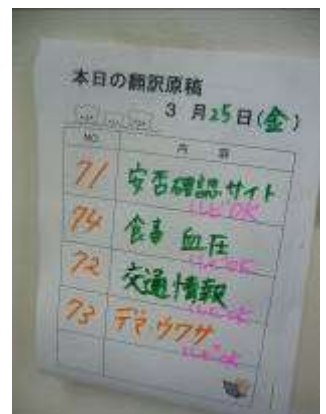 本日の翻訳原稿
3 月 25 日 (金)
NO. 内 容
71 安否確認サイト
OK
74 食事 血圧
OK
72 交通情報
OK
73 デマ ウワサ
OK